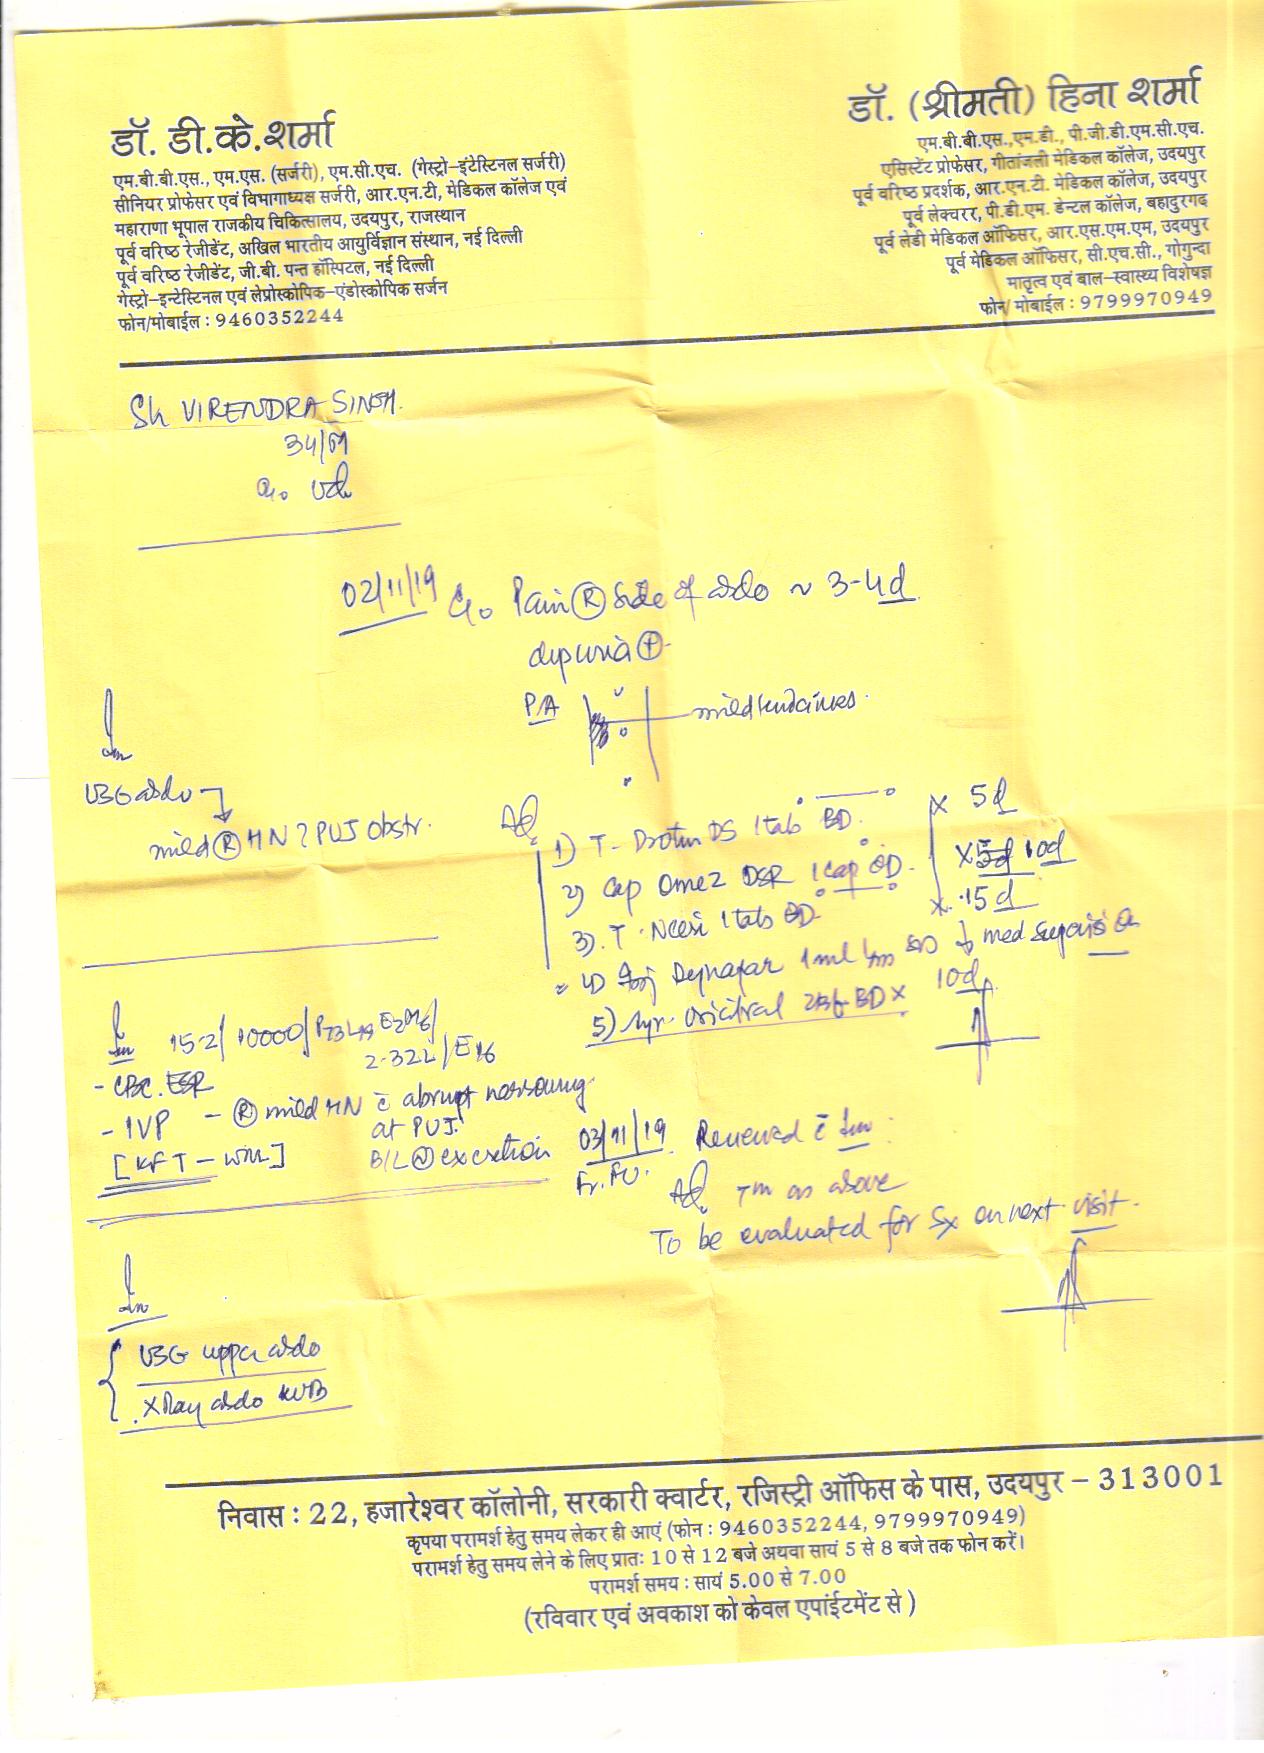 डॉ. डी.के.शर्मा
एम.बी.बी.एस., एम.एस. (सर्जरी), एम.सी.एच. (गेस्ट्रो-इंटेस्टिनल सर्जरी)
सीनियर प्रोफेसर एवं विभागाध्यक्ष सर्जरी, आर.एन.टी, मेडिकल कॉलेज एवं
महाराणा भूपाल राजकीय चिकित्सालय, उदयपुर, राजस्थान
पूर्व वरिष्ठ रेजीडेंट, अखिल भारतीय आयुर्विज्ञान संस्थान, नई दिल्ली
पूर्व वरिष्ठ रेजीडेंट, जी.बी. पन्त हॉस्पिटल, नई दिल्ली
गेस्ट्रो-इन्टेस्टिनल एवं लेप्रोस्कोपिक-एंडोस्कोपिक सर्जन
फोन/मोबाईल : 9460352244
डॉ. (श्रीमती) हिना शर्मा
एम.बी.बी.एस.,एम.डी., पी.जी.डी.एम.सी.एच.
एसिस्टेंट प्रोफेसर, गीतांजली मेडिकल कॉलेज, उदयपुर
पूर्व वरिष्ठ प्रदर्शक, आर.एन.टी. मेडिकल कॉलेज, उदयपुर
पूर्व लेक्चरर, पी.डी.एम. डेन्टल कॉलेज, बहादुरगढ़
पूर्व लेडी मेडिकल ऑफिसर, आर.एस.एम.एम, उदयपुर
पूर्व मेडिकल ऑफिसर, सी.एच.सी., गोगुन्दा
मातृत्व एवं बाल-स्वास्थ्य विशेषज्ञ
फोन/ मोबाईल : 9799970949
Sh VIRENDRA SINGH.
34/M
02/11/19 C/o Pain Ⓡ side of abdo ~ 3-4d
P/A mild tenderness.
USG abdo
mild Ⓡ HN ? PUJ obstr.
Adv
1) T- Drotin DS 1 tab BD. x 5d
2) Cap Omez DSR 1 cap OD. 10d
3). T. 1 tab x 15d
4) Inj 1ml im med supervision
5) Syr. 2tsf BD x 10d
15.2/ 10000/
- CBC. ESR
- IVP - Ⓡ mild HN c̄ abrupt narrowing
at PUJ.
B/L Ⓝ excretion
[KFT - WNL]
03/11/19 Reviewed c̄ Inv
Adv Tm as above
To be evaluated for Sx on next visit.
Inv
USG upper abdo
X Ray abdo KUB
निवास : 22, हजारेश्वर कॉलोनी, सरकारी क्वार्टर, रजिस्ट्री ऑफिस के पास, उदयपुर – 313001
कृपया परामर्श हेतु समय लेकर ही आएं (फोन : 9460352244, 9799970949)
परामर्श हेतु समय लेने के लिए प्रातः 10 से 12 बजे अथवा सायं 5 से 8 बजे तक फोन करें।
परामर्श समय : सायं 5.00 से 7.00
(रविवार एवं अवकाश को केवल एपांईटमेंट से )